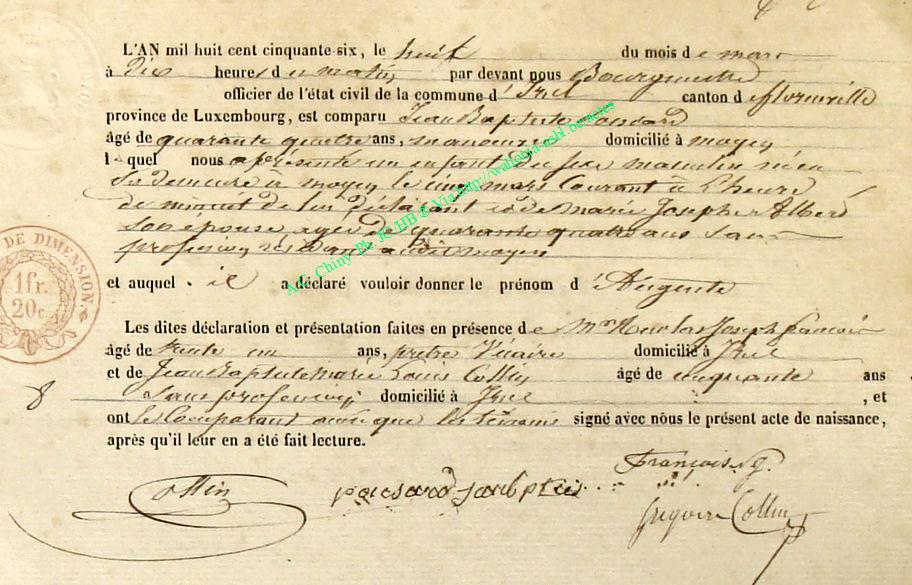 L'AN mil huit cent cinquante-six, le huit du mois de mars
à Dix heures du matin par devant nous Bourgmestre
officier de l'état civil de la commune d'Izel canton de florenville
province de Luxembourg, est comparu Jean Baptiste
âgé de quarante quatre ans, manoeuvre domicilié à moyen
lequel nous a présenté un enfant du sexe masculin né en
sa demeure à moyen le cinq mars courant à l'heure
de minuit de lui Déclarant et de Marie Josephe Albert
son épouse agée de quarante quatre ans sans
profession résidant audit moyen
et auquel il a déclaré vouloir donner le prénom d'Augente
Les dites déclaration et présentation faites en présence de Mr Nicolas Joseph françois
âgé de trente un ans, prêtre Vicaire domicilié à Izel
et de Jean Baptiste Marie Louis Collin âgé de cinquante ans
8 sans profession domicilié à Izel , et
ont le Comparant ainsi que les témoins signé avec nous le présent acte de naissance,
après qu'il leur en a été fait lecture.
François N. J.
Collin
Grégoire Collin
DE DIMENSION.
1 fr.
20 c.
A.G. Chiny Ph. JC/HB ® Via http://wallonia-asbl.be/actes